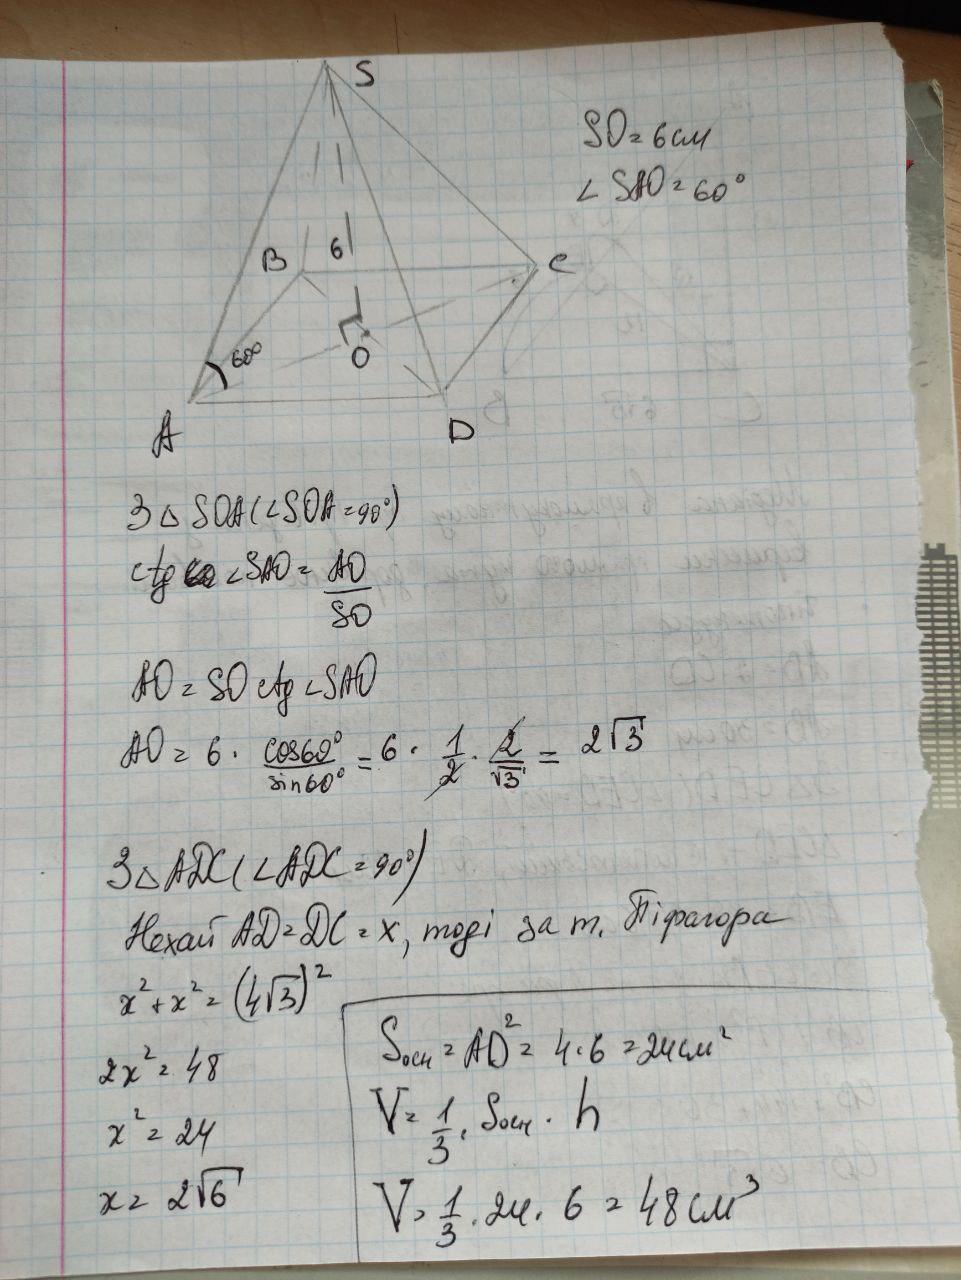 S
SO = 6 см
∠SAO = 60°
B 6 C
60° O
A D
З △ SOA (∠SOA = 90°)
ctg ∠SAO = AO/SO
AO = SO ctg ∠SAO
AO = 6 · cos60°/sin60° = 6 · 1/2 · 2/√3 = 2√3
З △ ADC (∠ADC = 90°)
Нехай AD = DC = x, тоді за т. Піфагора
x² + x² = (4√3)²
2x² = 48
x² = 24
x = 2√6
Sосн = AD² = 4·6 = 24 см²
V = 1/3 · Sосн · h
V = 1/3 · 24 · 6 = 48 см³